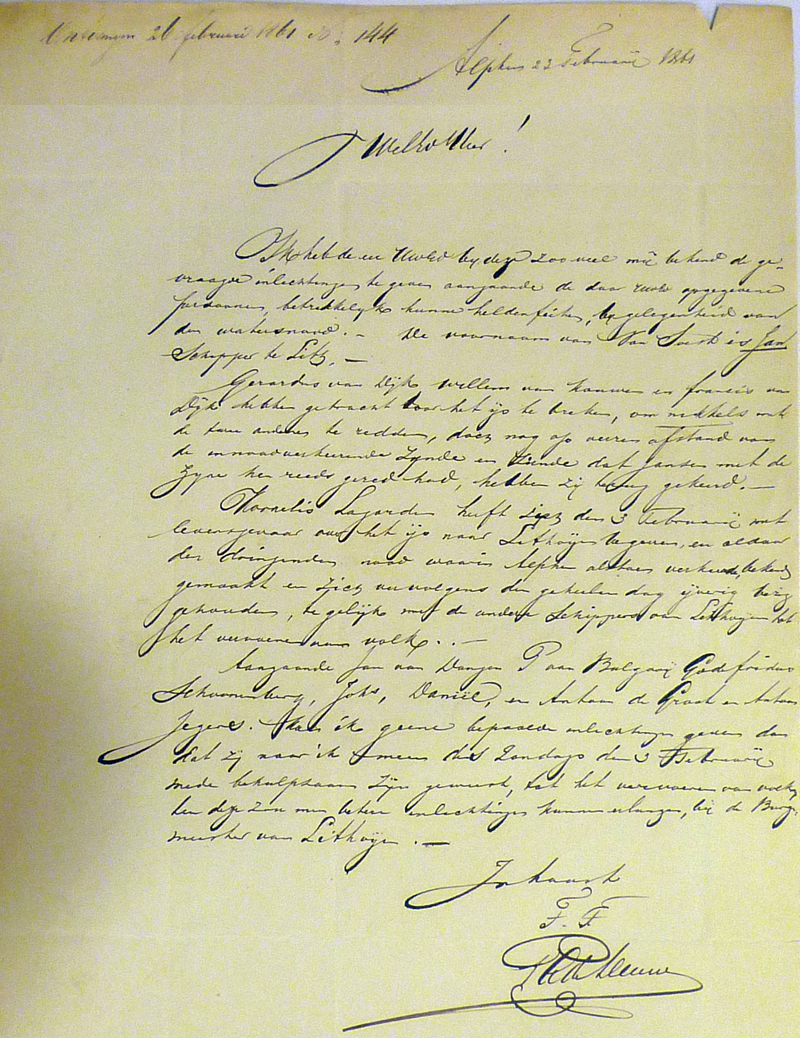 26 februari 1861 No. 144
Alphen 23 Februarij 1861
WelEd Heer!
Ik heb de eer UwEd by deze zoo veel mij bekend de ge-
vraagde inlichtingen te geven aangaande de door UwEd opgegevene
personen, betrekkelijk hunne heldenfeiten, by gelegenheid van
den watersnood. — De voornaam van Van Soest is Jan
Schipper te Lith. —
Gerardus van Dijk Willem van Kouwen en francis van
Dijk hebben getracht door het ijs te breken, om
de twee anderen te redden, doch nog op veeren afstand van
de in nood verkeerende zynde en ziende dat Jansen met de
zyne hen reeds gered had, hebben zij terug gekeerd. —
Kornelis Lagarde heeft zich den 3 Februarij met
levensgevaar over het ijs naar Lithoijen begeven, en aldaar
den dringenden nood waarin Alphen alstoen verkeerde, bekend
gemaakt en zich vervolgens den geheelen dag ijverig bezig
gehouden, te gelijk met de andere Schippers van Lithoijen tot
het vervoeren van volk. . —
Aangaande Jan van Dongen P van Bulgarij Godefridus
Schuurenberg, Johs, Daniël, en Antoon de Groot en Antoon
Jegers. Kan ik geene bepaalde inlichtingen geven dan
dat zij naar ik meen des Zondags den 3 Februarij
mede behulpzaam zijn geweest, tot het vervoeren van volk,
ten deze zou men betere inlichtingen kunnen erlangen, bij de Burge-
meester van Lithoijen. —
F. F